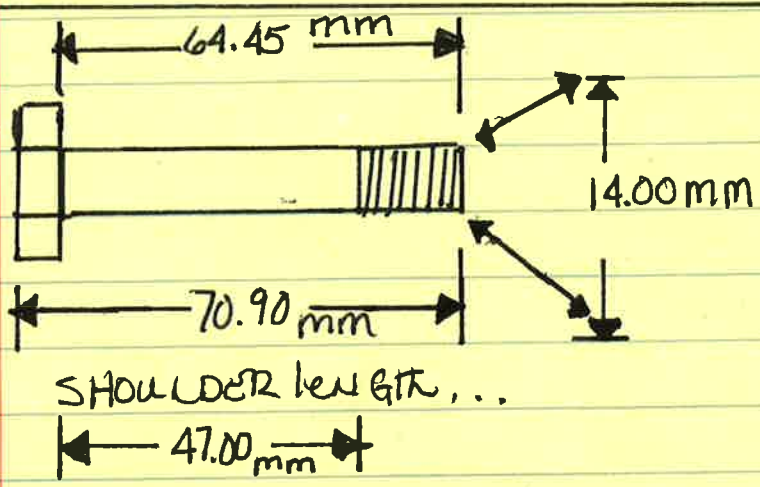 64.45 mm
14.00 mm
70.90 mm
SHOULDER lENGTH...
47.00 mm